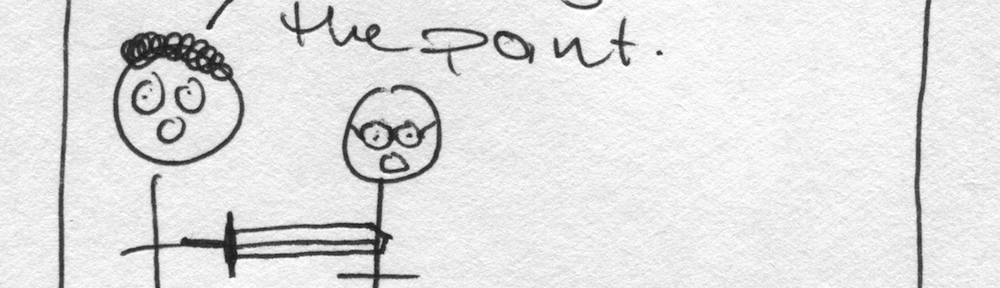 the point.